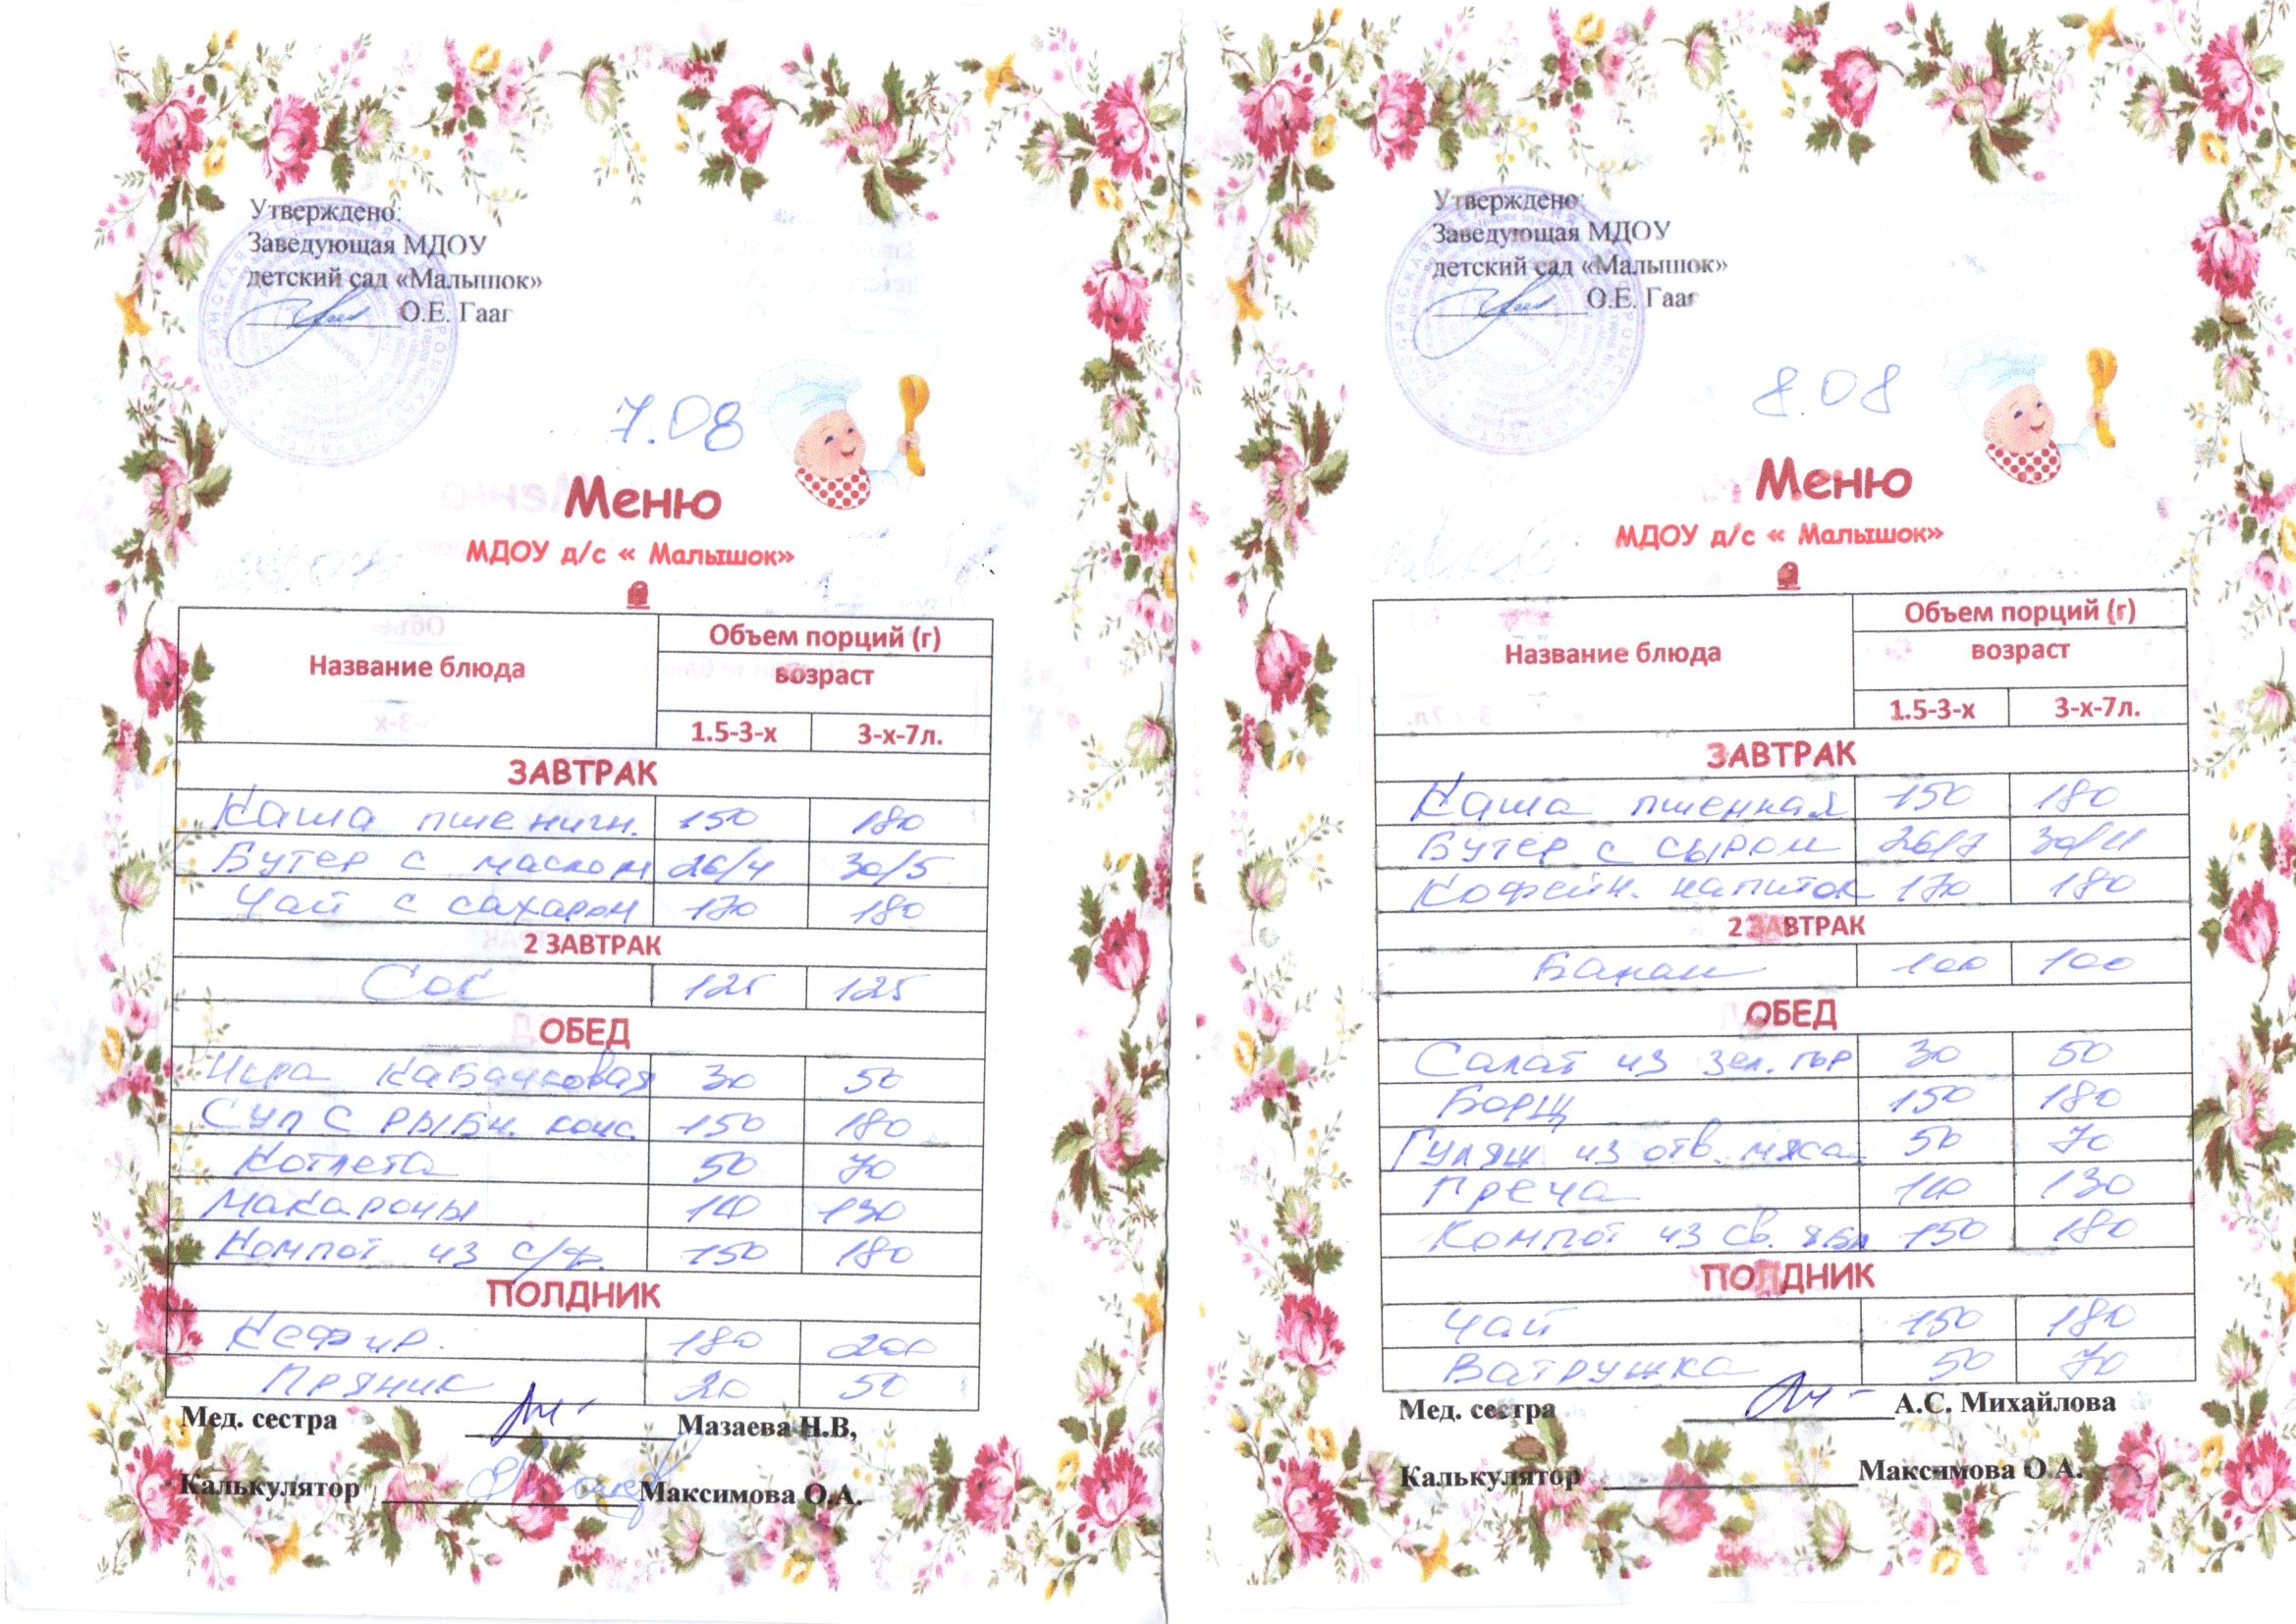 Утверждено:
Заведующая МДОУ
детский сад «Малышок»
О.Е. Гааг
7.08
Меню
МДОУ д/с « Малышок»
Название блюда
Объем порций (г)
возраст
1.5-3-х 3-х-7л.
ЗАВТРАК
Каша пшеничн. 150 180
Бутер с маслом 26/4 30/5
Чай с сахаром 170 180
2 ЗАВТРАК
Сок 125 125
ОБЕД
Икра кабачковая 30 50
Суп с рыбн. конс. 150 180
Котлета 50 70
Макароны 110 130
Компот из с/ф. 150 180
ПОЛДНИК
Кефир. 180 200
Пряник 20 50
Мед. сестра Мазаева Н.В,
Калькулятор Максимова О.А.
Утверждено:
Заведующая МДОУ
детский сад «Малышок»
О.Е. Гааг
8.08
Меню
МДОУ д/с « Малышок»
Название блюда
Объем порций (г)
возраст
1.5-3-х 3-х-7л.
ЗАВТРАК
Каша пшенная 150 180
Бутер с сыром 26/7 30/11
Кофейн. напиток 170 180
2 ЗАВТРАК
Банан 100 100
ОБЕД
Салат из зел. гор 30 50
Борщ 150 180
Гуляш из отв. мяса 50 70
Греча 110 130
Компот из св. ябл 150 180
ПОЛДНИК
Чай 150 180
Ватрушка 50 70
Мед. сестра А.С. Михайлова
Калькулятор Максимова О.А.